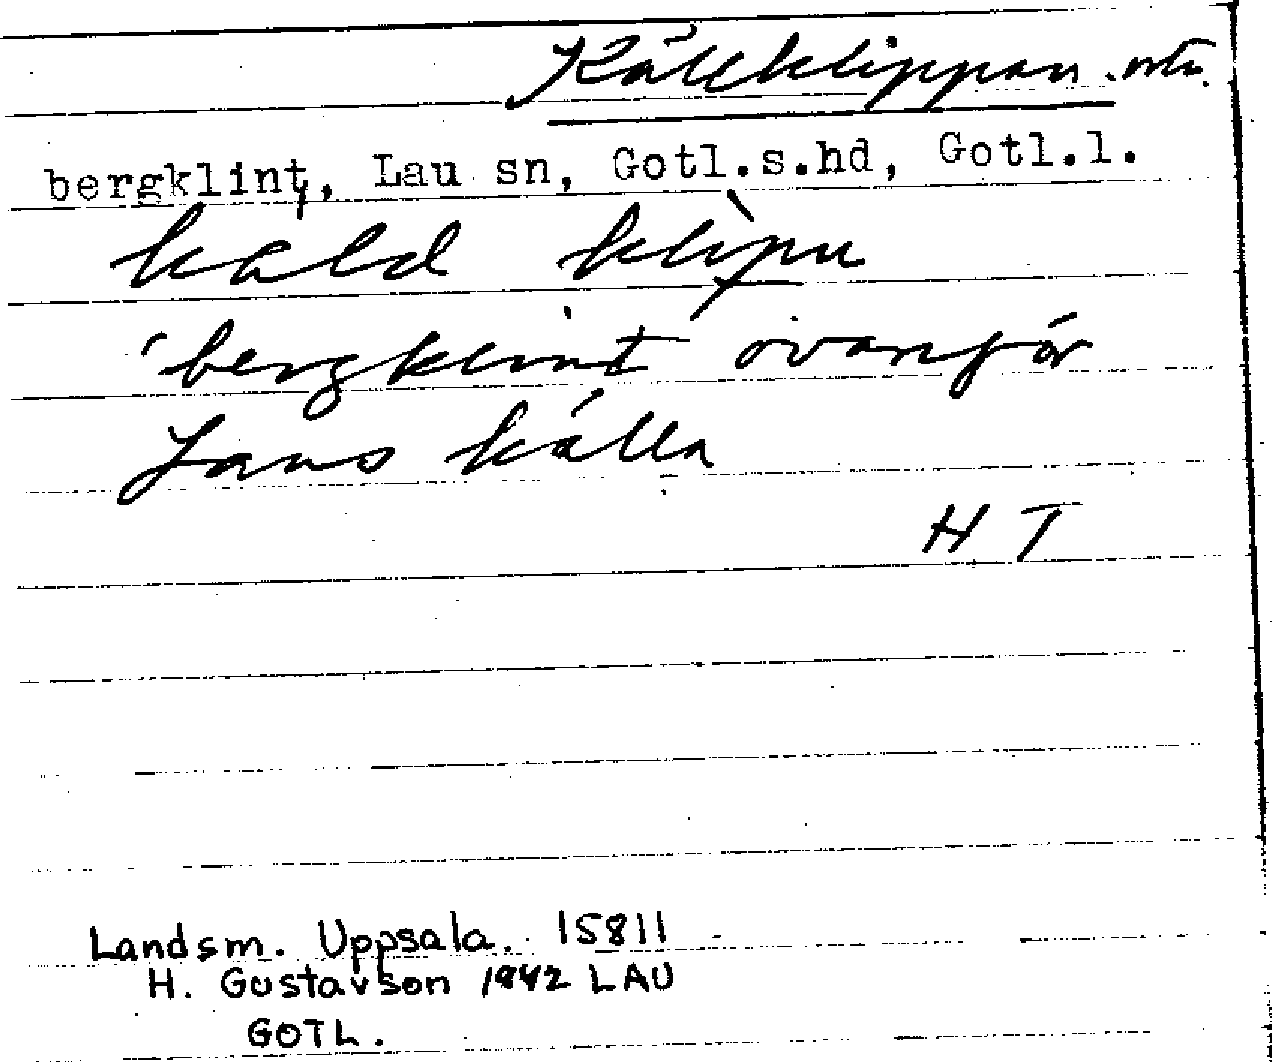 Källklippan. ortn.
bergklint, Lau sn, Gotl.s.hd, Gotl.l.
káld klìpu
'bergklint ovanför
Laus källa
H T
Landsm. Uppsala. 15811
H. Gustavson 1942 LAU
GOTL.